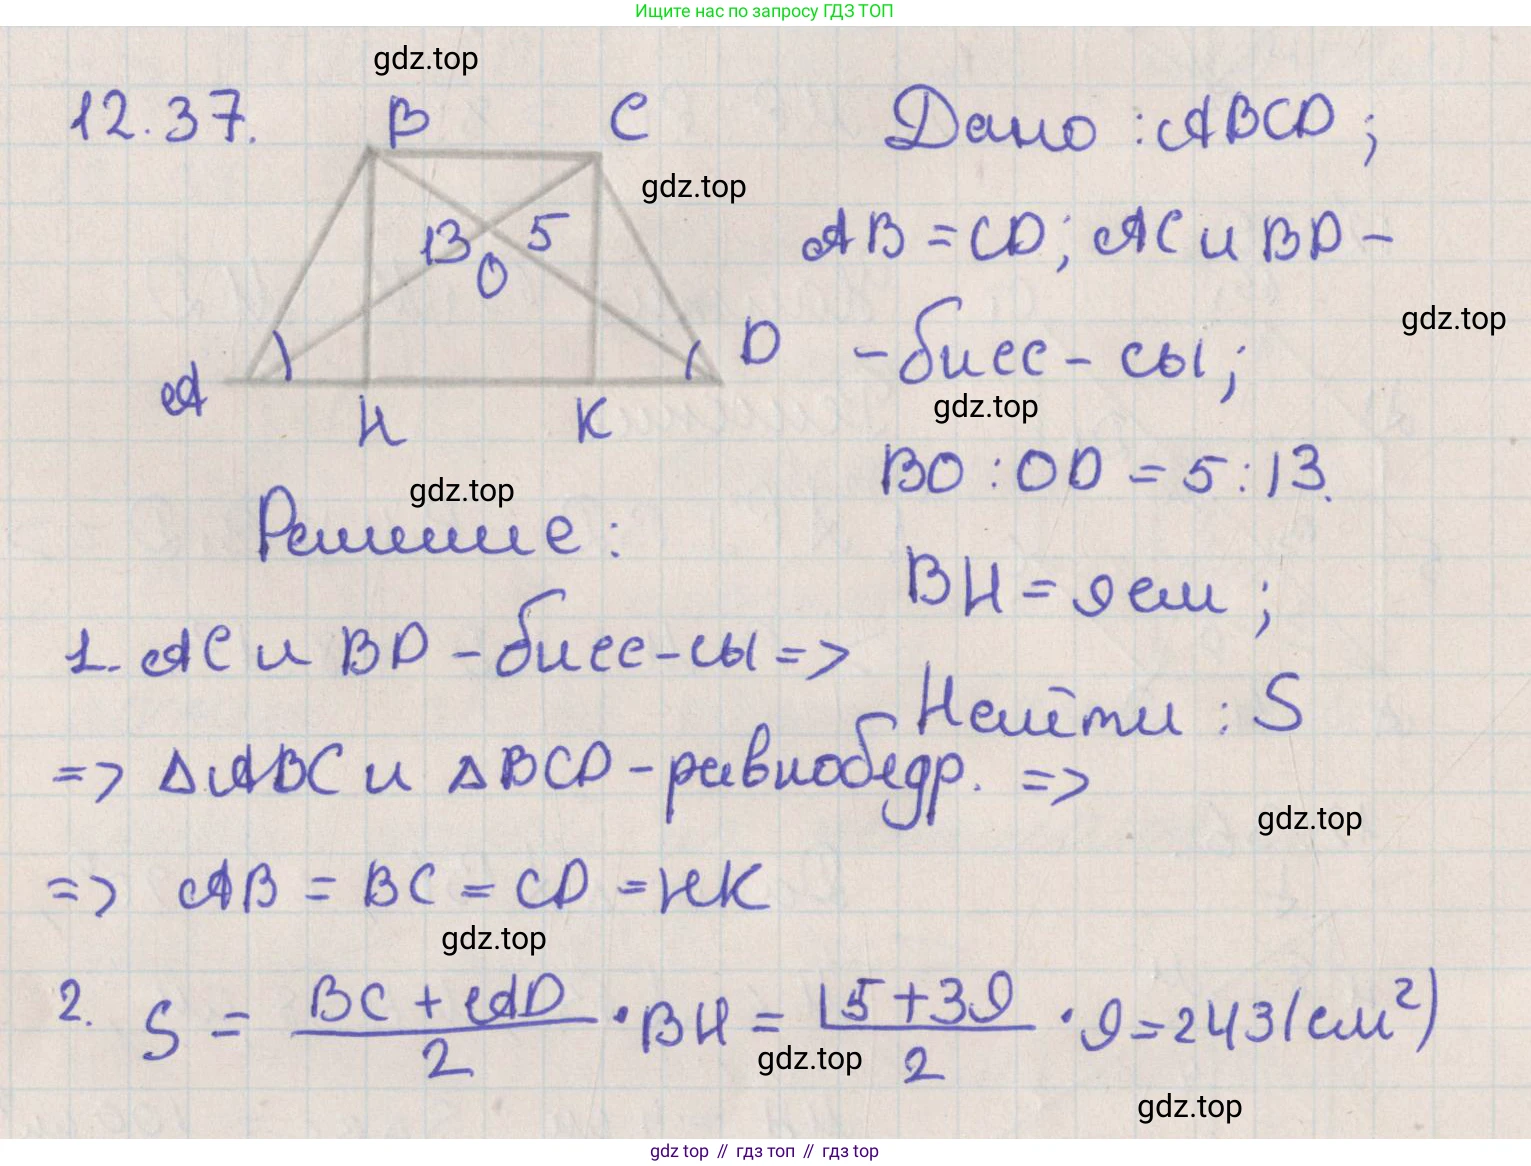 Ищите нас по запросу ГДЗ ТОП
gdz.top
12.37.
B
C
Дано : ABCD ;
gdz.top
13
5
O
AB = CD; AC и BD -
gdz.top
A
D
H
K
- бисс - сы ;
gdz.top
BO : OD = 5 : 13.
gdz.top
Решение :
BH = 9 см ;
1. AC и BD - бисс-сы =>
Найти : S
=> ΔABC и ΔBCD - равнобедр. =>
gdz.top
=> AB = BC = CD = HK
gdz.top
2. S = BC + AD / 2 · BH = 15 + 39 / 2 · 9 = 243 (см²)
gdz.top
gdz.top
gdz top // гдз топ // гдз top